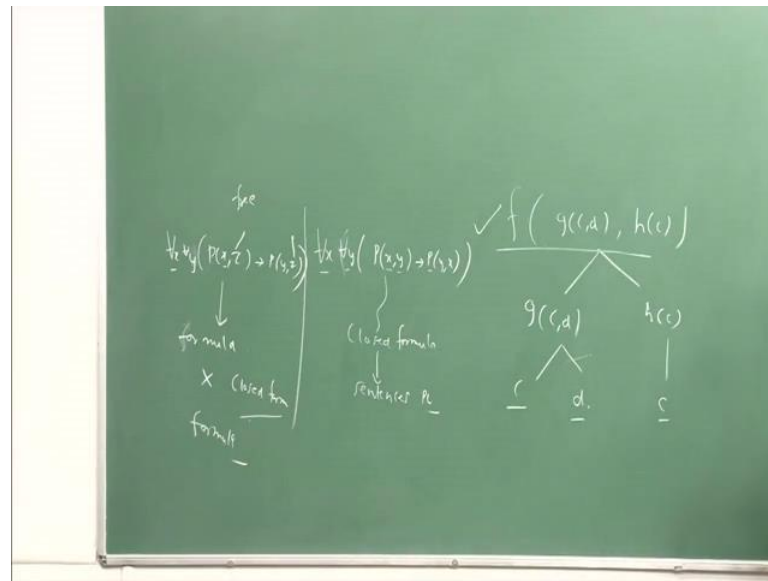 free
∀x ∀y ( P(x,z) → P(y,z) )
formula
X closed form
formula
∀x ∀y ( P(x,y) → P(y,x) )
closed formula
sentences PL
✓ f ( g(c,d), h(c) )
g(c,d) h(c)
c d. c